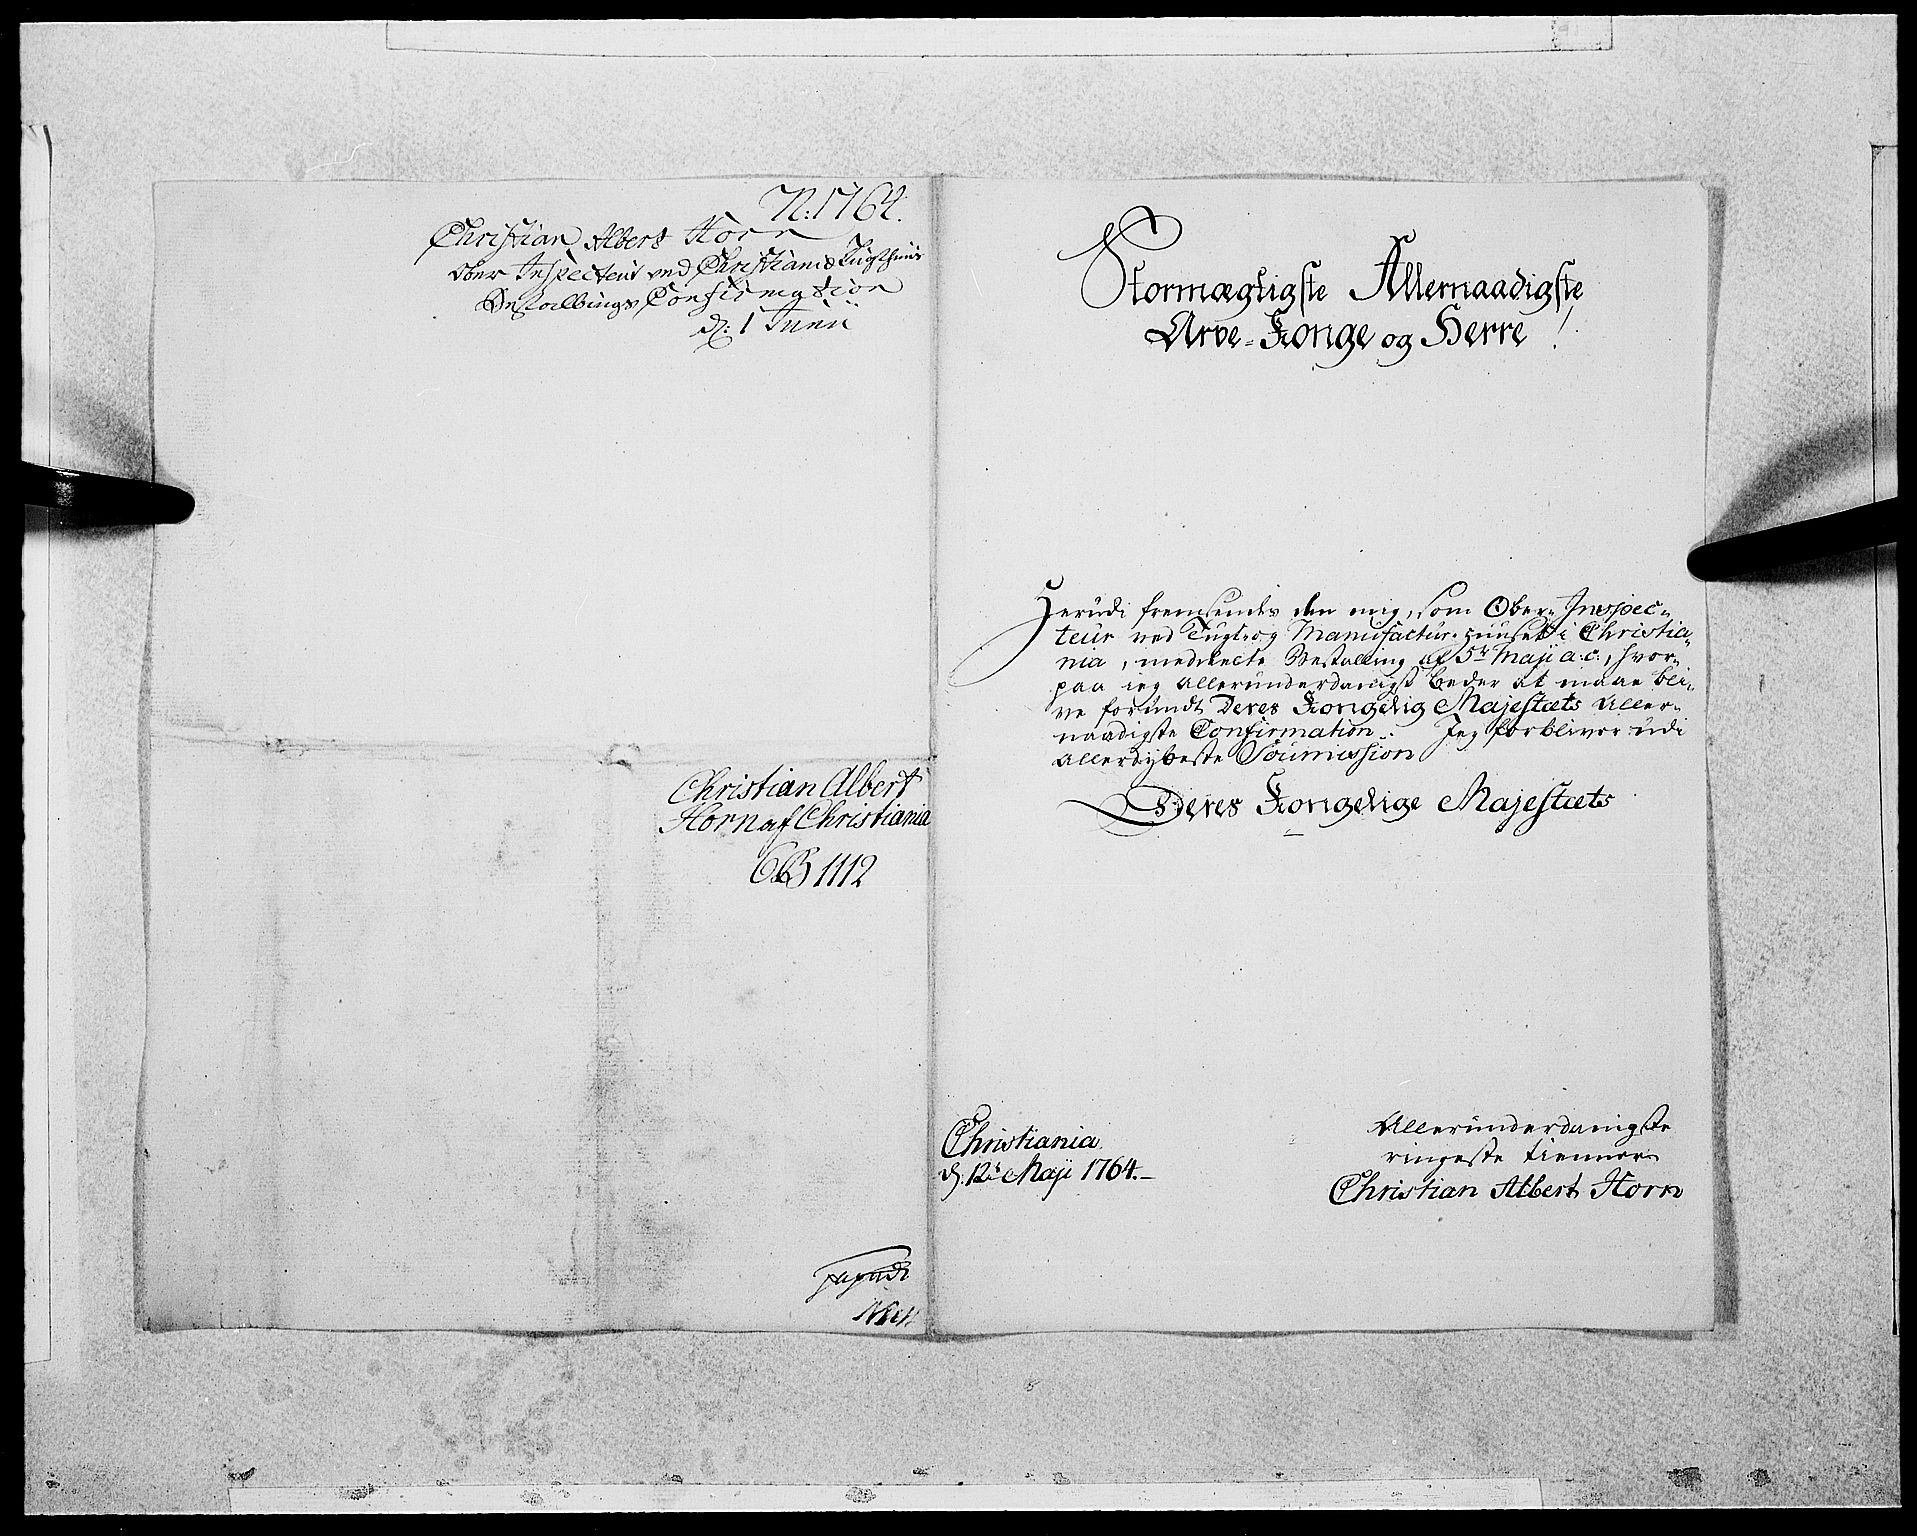 N: 1764.
Christian Albert Horn
Ober Inspecteur ved Christiania Tugthuus
Bestallings Confirmation
d: 1 Junii
Christian Albert
Horn af Christiania
1112
Stormægtigste Allernaadigste
Arve-Konge og Herre!
Herudi fremsendes den mig, som Ober-Inspec-
teur ved Tugt-og Manufactur-Huuset i Christia-
nia, meddeelte Bestalling af 5te Maji a: c:, hvor-
paa jeg allerunderdanigst beder at maae bli-
ve forundt Deres Kongelig Majestæts Aller-
naadigste Confirmation. Jeg forbliver udi
allerdybeste Soumission
Deres Kongelige Majestæts
Christiania
d: 12te Maji 1764.-
Allerunderdanigste
ringeste tienner
Christian Albert Horn